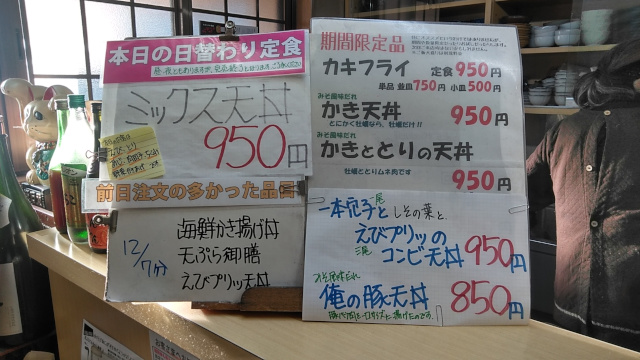 本日の日替わり定食
ミックス天丼
950円
前日注文の多かった品目
12/7分
海鮮かき揚げ丼
天ぷら御膳
えびプリッ天丼
期間限定品
カキフライ 定食950円
単品 並皿750円 小皿500円
みそ風味だれ
かき天丼 950円
とにかく牡蠣なら、牡蠣だけ!!
みそ風味だれ
かきととりの天丼
牡蠣ととりムネ肉です 950円
一本穴子と しその葉と、
えびプリッの
2尾 コンビ天丼 950円
みそ風味だれ
俺の豚天丼 850円